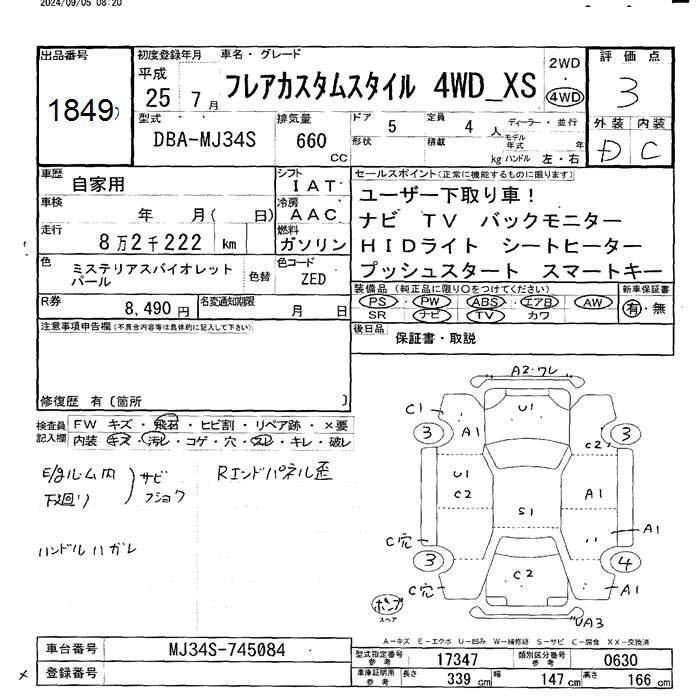 2024/09/05 08:20
出品番号
1849
初度登録年月
平成
25 7 月
車名・グレード
フレアカスタムスタイル 4WD_XS
2WD
・
4WD
評 価 点
3
外装 内装
D C
型式
DBA-MJ34S
排気量
660
CC
ドア
5
形状
定員
4 人
積載
kg
ディーラー・並行
モデル年式 年
ハンドル 左・右
車歴
自家用
シフト
IAT
車検
年 月( 日)
冷房
AAC
走行
8万2千222 km
燃料
ガソリン
色
ミステリアスバイオレット
パール
色替
色コード
ZED
R券
8,490 円
名変通知期限
月 日
セールスポイント(正常に機能するものに限ります)
ユーザー下取り車!
ナビ TV バックモニター
HIDライト シートヒーター
プッシュスタート スマートキー
装備品(純正品に限り○をつけてください)
PS・PW・ABS・エアB・AW
SR ナビ・TV・カワ
新車保証書
有・無
後日品
保証書・取説
注意事項申告欄(不具合内容等は具体的に記入して下さい)
修復歴 有〔箇所 〕
検査員
記入欄
FW キズ・飛石・ヒビ割・リペア跡・×要
内装 キズ・汚レ・コゲ・穴・スレ・キレ・破レ
E/gルーム内
下廻り
サビ
フショク
Rエンドパネル歪
ハンドルハガレ
A2・ワレ
C1
U1
3
A1
3
C2
U1
C2
A1
S1
A1
C穴
3
4
C2
C穴
A1
ポンプ
スペア
UA3
A-キズ E-エクボ U-凹み W-補修跡 S-サビ C-腐食 XX-交換済
車台番号
MJ34S-745084
登録番号
型式指定番号
参考
17347
類別区分番号
参考
0630
車庫証明用
参考
長さ
339 cm
幅
147 cm
高さ
166 cm